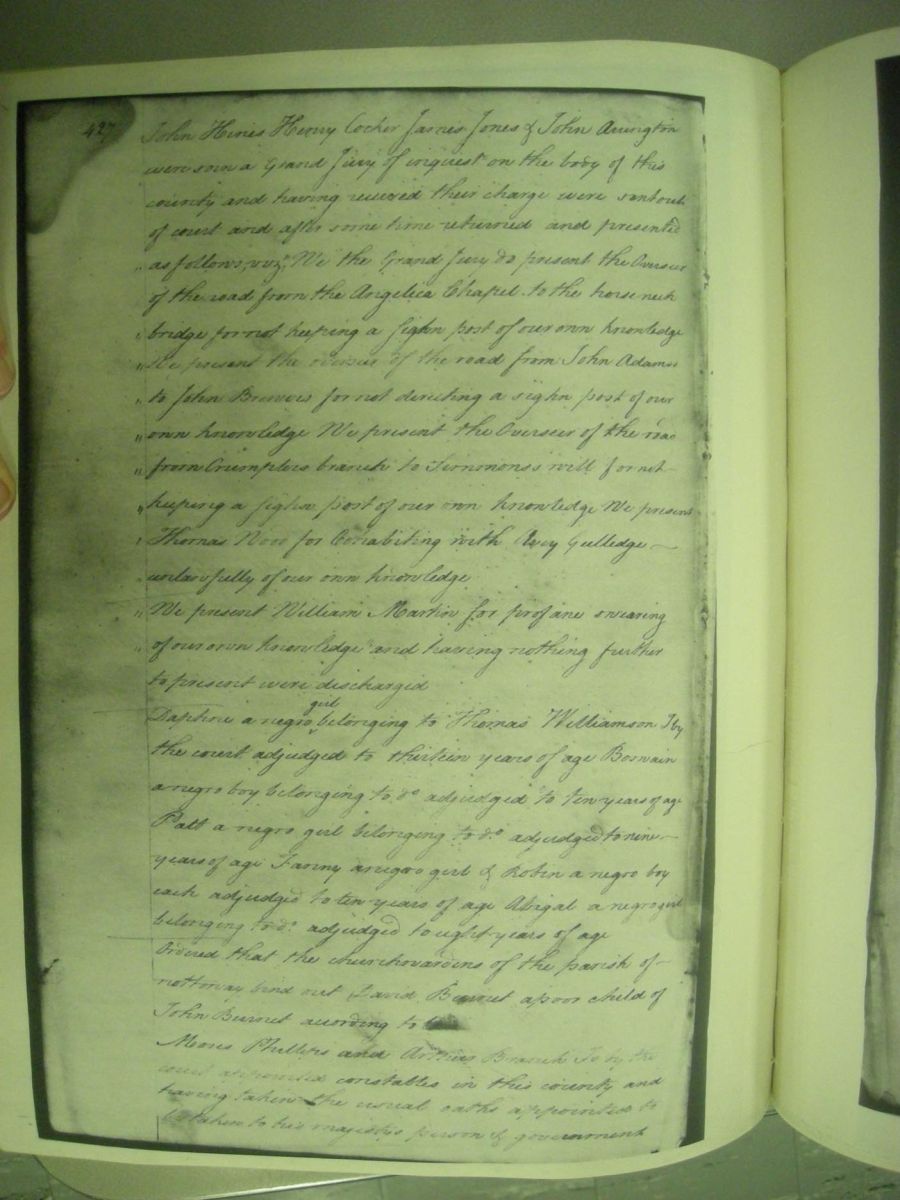 427
John Hines Henry Cocker James Jones & John Arrington
were sworn a Grand Jury of inquest on the body of this
county and having received their charge were sent out
of court and after some time returned and presented
as follows, viz. We the Grand Jury do present the Overseer
of the road from the Angelica Chapel to the horseneck
bridge for not keeping a sighn post of our own knowledge
We present the overseer of the road from John Adams
to John Brewers for not directing a sighn post of our
own knowledge We present the Overseer of the road
from Crumplers branch to Simmonss mill for not
keeping a sighn post of our own knowledge We present
Thomas for Cohabiting with Avey Gulledge
unlawfully of our own knowledge
We present William Martin for profane swearing
of our own knowledge" and having nothing further
to present were discharged
Daphne a negro girl belonging to Thomas Williamson Is by
the court adjudged to thirteen years of age
a negro boy belonging to do adjudged to ten years of age
Patt a negro girl belonging to do adjudged to nine
years of age Fanny a negro girl & Robin a negro boy
each adjudged to ten years of age Abigal a negro girl
belonging to do adjudged to eight years of age
Ordered that the churchwardens of the parish of
nottoway bind out David a poor child of
John according to
Moses Phillips and Arthur Branch Is by the
court appointed constables in this county and
having taken the usual oaths appointed to
be taken to his majestys person & government